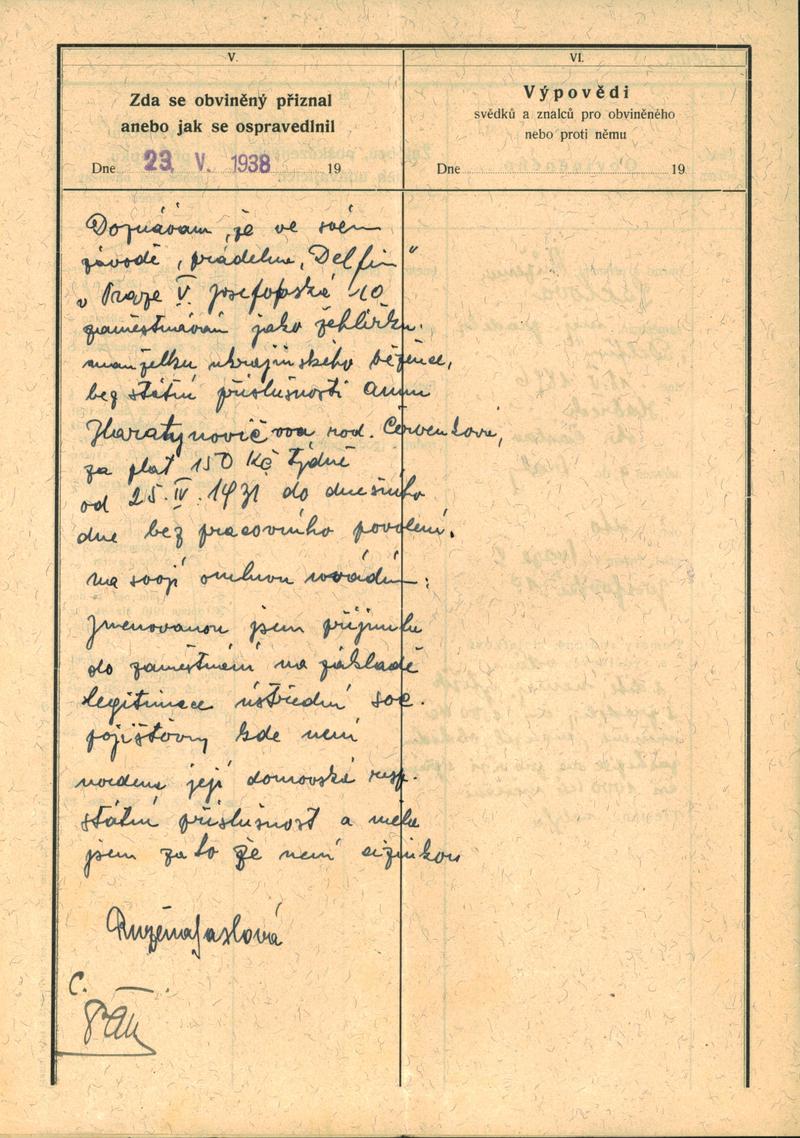 V.
Zda se obviněný přiznal
anebo jak se ospravedlnil
Dne 23. V. 1938 19
VI.
Výpovědi
svědků a znalců pro obviněného
nebo proti němu
Dne 19
Doznávám, že ve svém
závodě, prádelna „Delfin“
v Praze V. Josefovská 10
zaměstnávám jako žehlířku
manželku ukrajinského běžence,
bez státní příslušnosti Annu
Haratynovičovou rod. Červenková,
za plat 150 Kč týdně
od 25. IV. 1931 do dnešního
dne bez pracovního povolení.
Na svoji omluvu uvádím:
Jmenovanou jsem přijmula
do zaměstnání na základě
legitimace ústřední soc.
pojišťovny kde není
uvedena její domovská resp.
státní příslušnost a měla
jsem za to že není cizinkou
Růžena
C.